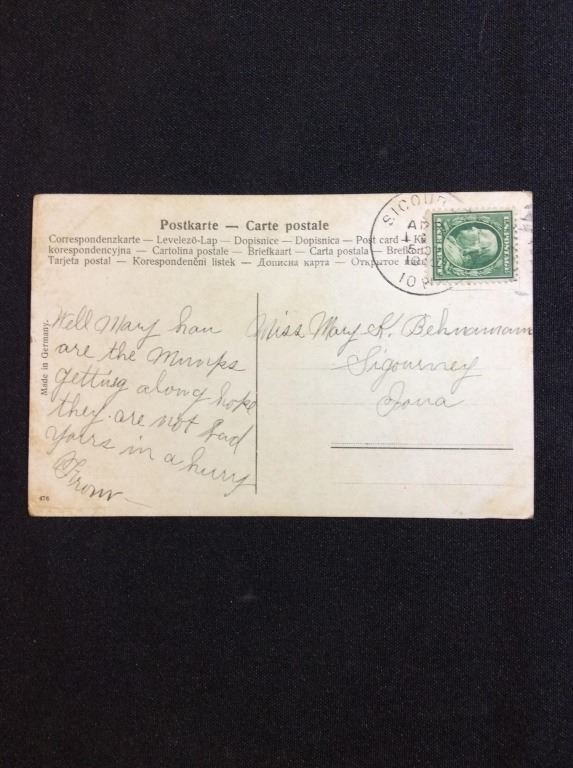 Postkarte — Carte postale
Correspondenzkarte — Levelező-Lap — Dopisnice — Dopisnica — Post card —
korespondencyjna — Cartolina postale — Briefkaart — Carta postala —
Tarjeta postal — Korespondenční lístek — Дописна карта — Открытое
SIGOUR
AP
10
Made in Germany.
Well Mary how
are the Mumps
getting along hope
they are not bad
yours in a hurry
From
476
Miss Mary K. Behnamann
Sigourney
Iowa